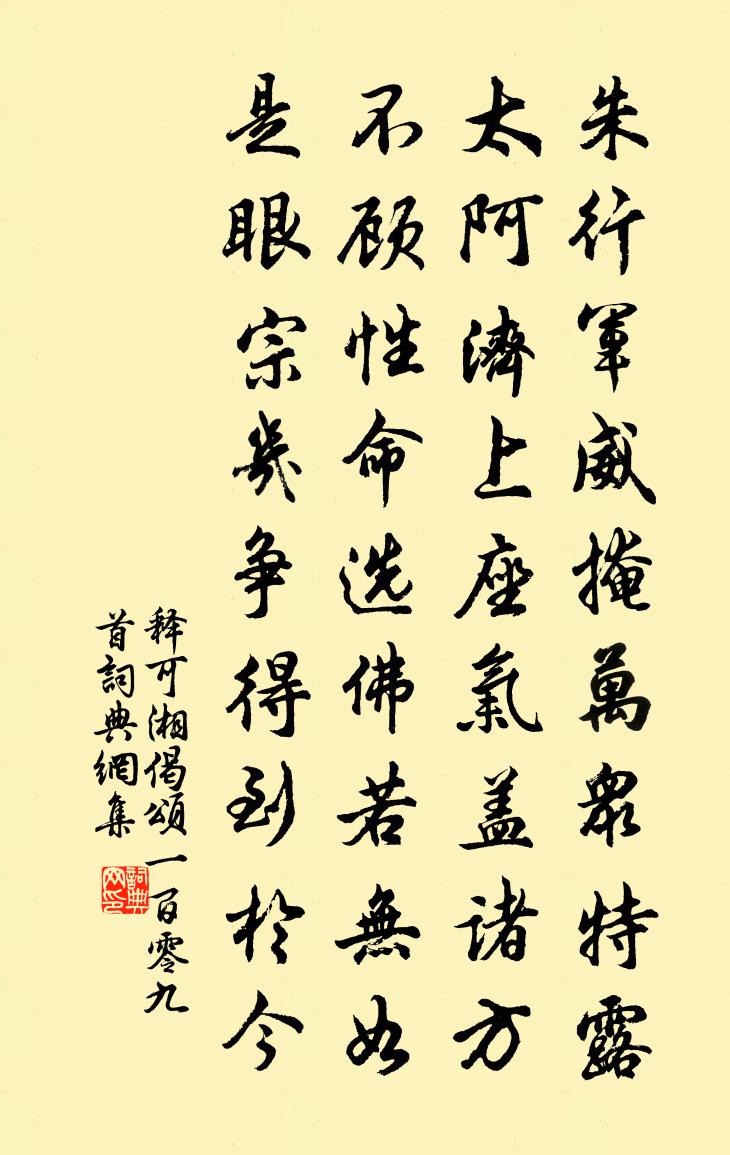 朱行军威掩萬衆特露
太阿濟上座氣盖诸方
不顾性命选佛若無如
是眼宗幾争得到於今
释可湘偈頌一百零九
首詞典網集
詞典
网印